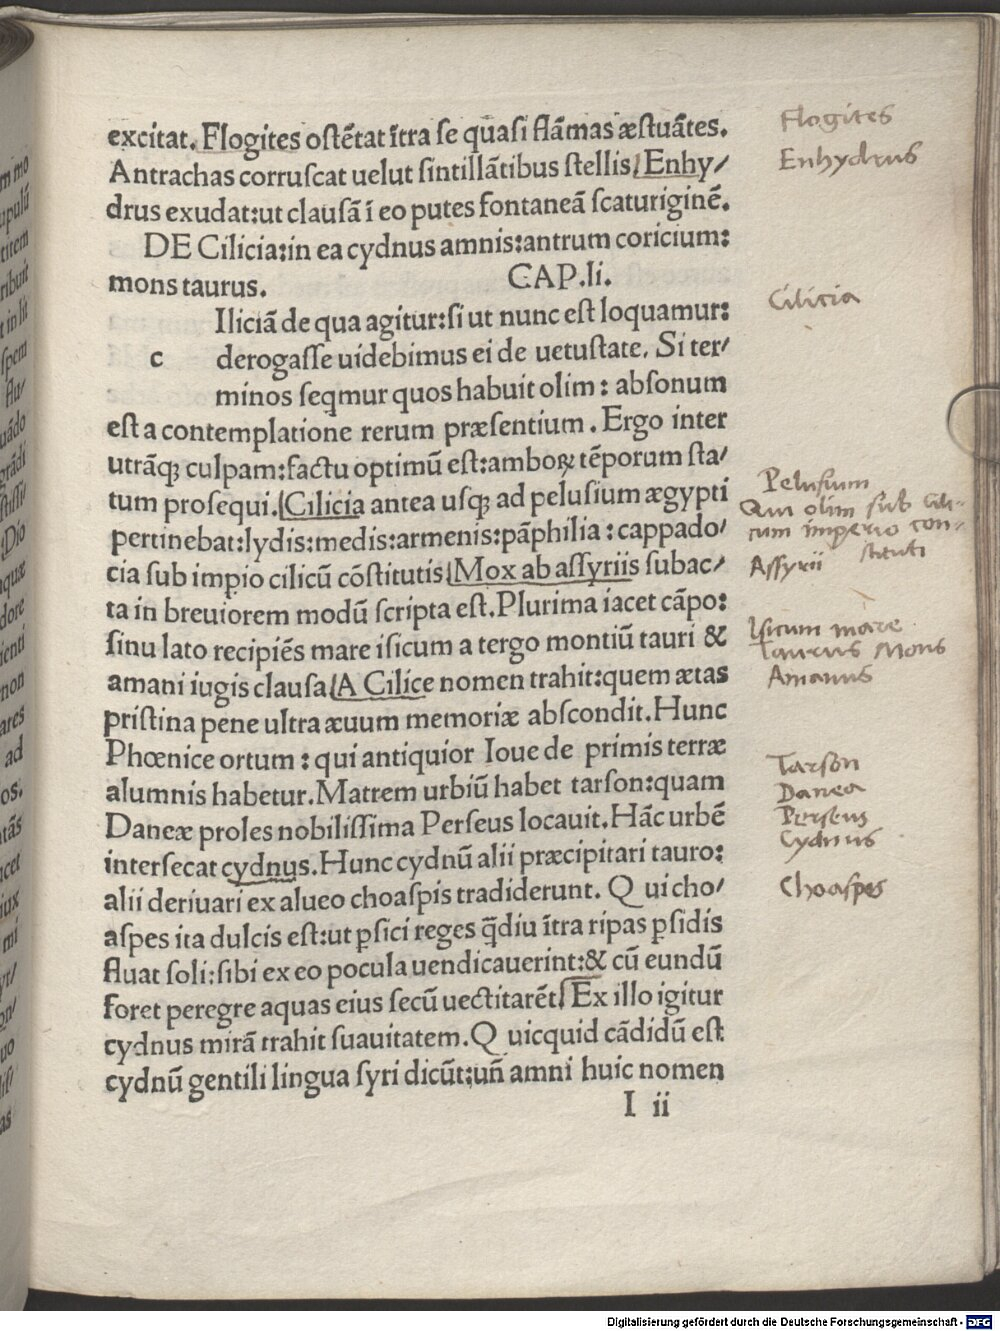 excitat. Flogites ostētat ītra se quasi flāmas æstuātes.
Antrachas corruscat uelut sintillātibus stellis. Enhy/
drus exudat:ut clausā ī eo putes fontaneā scaturiginē.
DE Cilicia:in ea cydnus amnis:antrum coricium:
mons taurus. CAP.li.
Iliciā de qua agitur:si ut nunc est loquamur:
c derogasse uidebimus ei de uetustate. Si ter/
minos seqmur quos habuit olim : absonum
est a contemplatione rerum præsentium . Ergo inter
utrāqꝫ culpam:factu optimū est:amboꝝ tēporum sta/
tum prosequi. Cilicia antea usqꝫ ad pelusium ægypti
pertinebat:lydis:medis:armenis:pāphilia : cappado/
cia sub impio cilicū cōstitutis. Mox ab assyriis subac/
ta in breuiorem modū scripta est. Plurima iacet cāpo:
sinu lato recipiēs mare isicum a tergo montiū tauri &
amani iugis clausa. A Cilice nomen trahit:quem ætas
pristina pene ultra æuum memoriæ abscondit. Hunc
Phœnice ortum : qui antiquior Ioue de primis terræ
alumnis habetur. Matrem urbiū habet tarson:quam
Daneæ proles nobilissima Perseus locauit. Hāc urbē
intersecat cydnus. Hunc cydnū alii præcipitari tauro:
alii deriuari ex alueo choaspis tradiderunt. Q uicho/
aspes ita dulcis est:ut ꝑsici reges q̄diu ītra ripas ꝑsidis
fluat soli:sibi ex eo pocula uendicauerint:& cū eundū
foret peregre aquas eius secū uectitarēt. Ex illo igitur
cydnus mirā trahit suauitatem. Q uicquid cādidū est
cydnū gentili lingua syri dicūt:uñ amni huic nomen
I ii
Flogites
Enhydrus
Cilicia
Pelusium
Qui olim sub Cili-
cum imperio con-
stituti
Assyrii
Isicum mare
Taurus Mons
Amanus
Tarson
Danea
Perseus
Cydnus
Choaspes
Digitalisierung gefördert durch die Deutsche Forschungsgemeinschaft - DFG